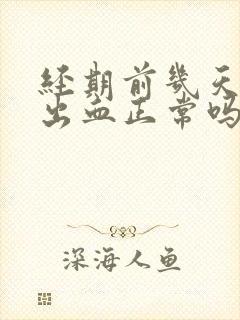 经期前几天
出血正常吗
深海人鱼